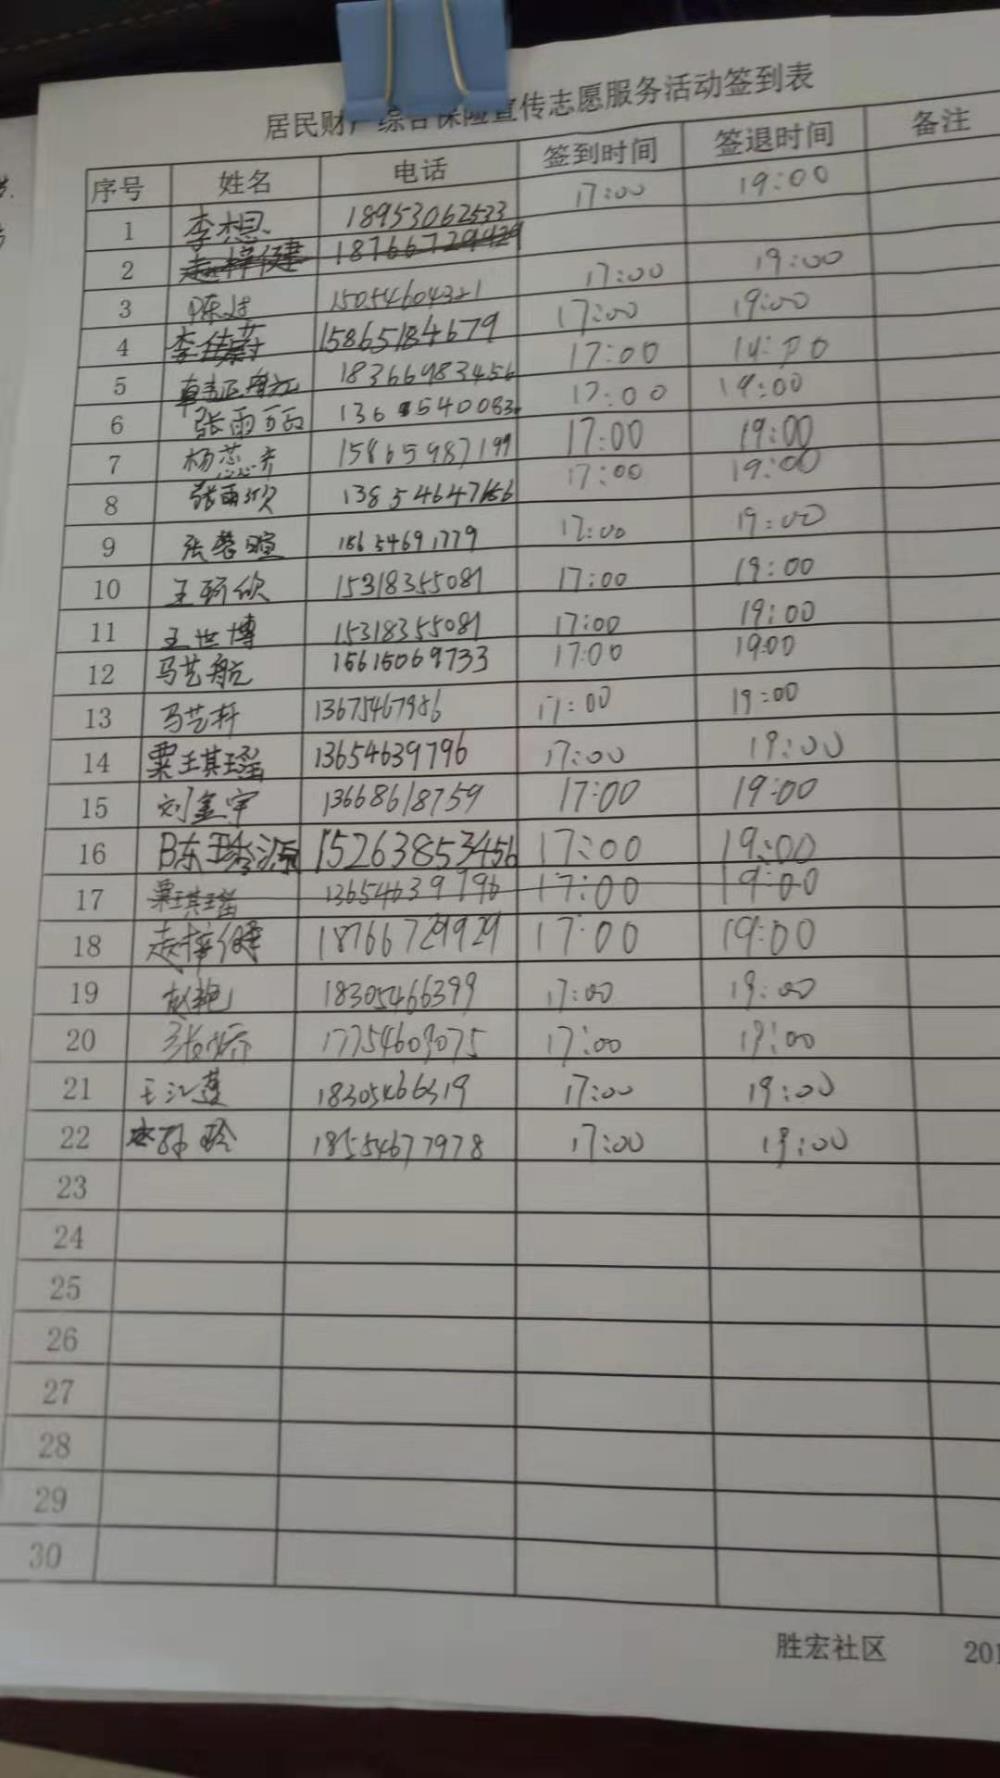 居民财产综合保险宣传志愿服务活动签到表
序号 姓名 电话 签到时间 签退时间 备注
1 李想 18953062533 17:00 19:00
2 赵梓健 18766729929
3 15054604321 17:00 19:00
4 李佳蔚 15865184679 17:00 19:00
5 18366983456 17:00
6 张雨 17:00 19:00
7 杨蕊齐 15865987199 17:00 19:00
8 张雨欣 17:00 19:00
9 张蓉暄 17:00 19:00
10 王珂欣 15318355081 17:00 19:00
11 王世博 15318355081 17:00 19:00
12 马艺航 15615069733 17:00 19:00
13 马艺轩 13675467986 17:00 19:00
14 粟琪瑶 13654639796 17:00 19:00
15 刘金宇 13668618759 17:00 19:00
16 陈瑞源 15263853456 17:00 19:00
17 粟琪瑶 13654639796 17:00 19:00
18 赵梓健 18766729929 17:00 19:00
19 赵艳 18305466399 17:00 19:00
20 张娇 17754609075 17:00 19:00
21 王江莲 18305466319 17:00 19:00
22 孙玲 18554677978 17:00 19:00
23
24
25
26
27
28
29
30
胜宏社区 201